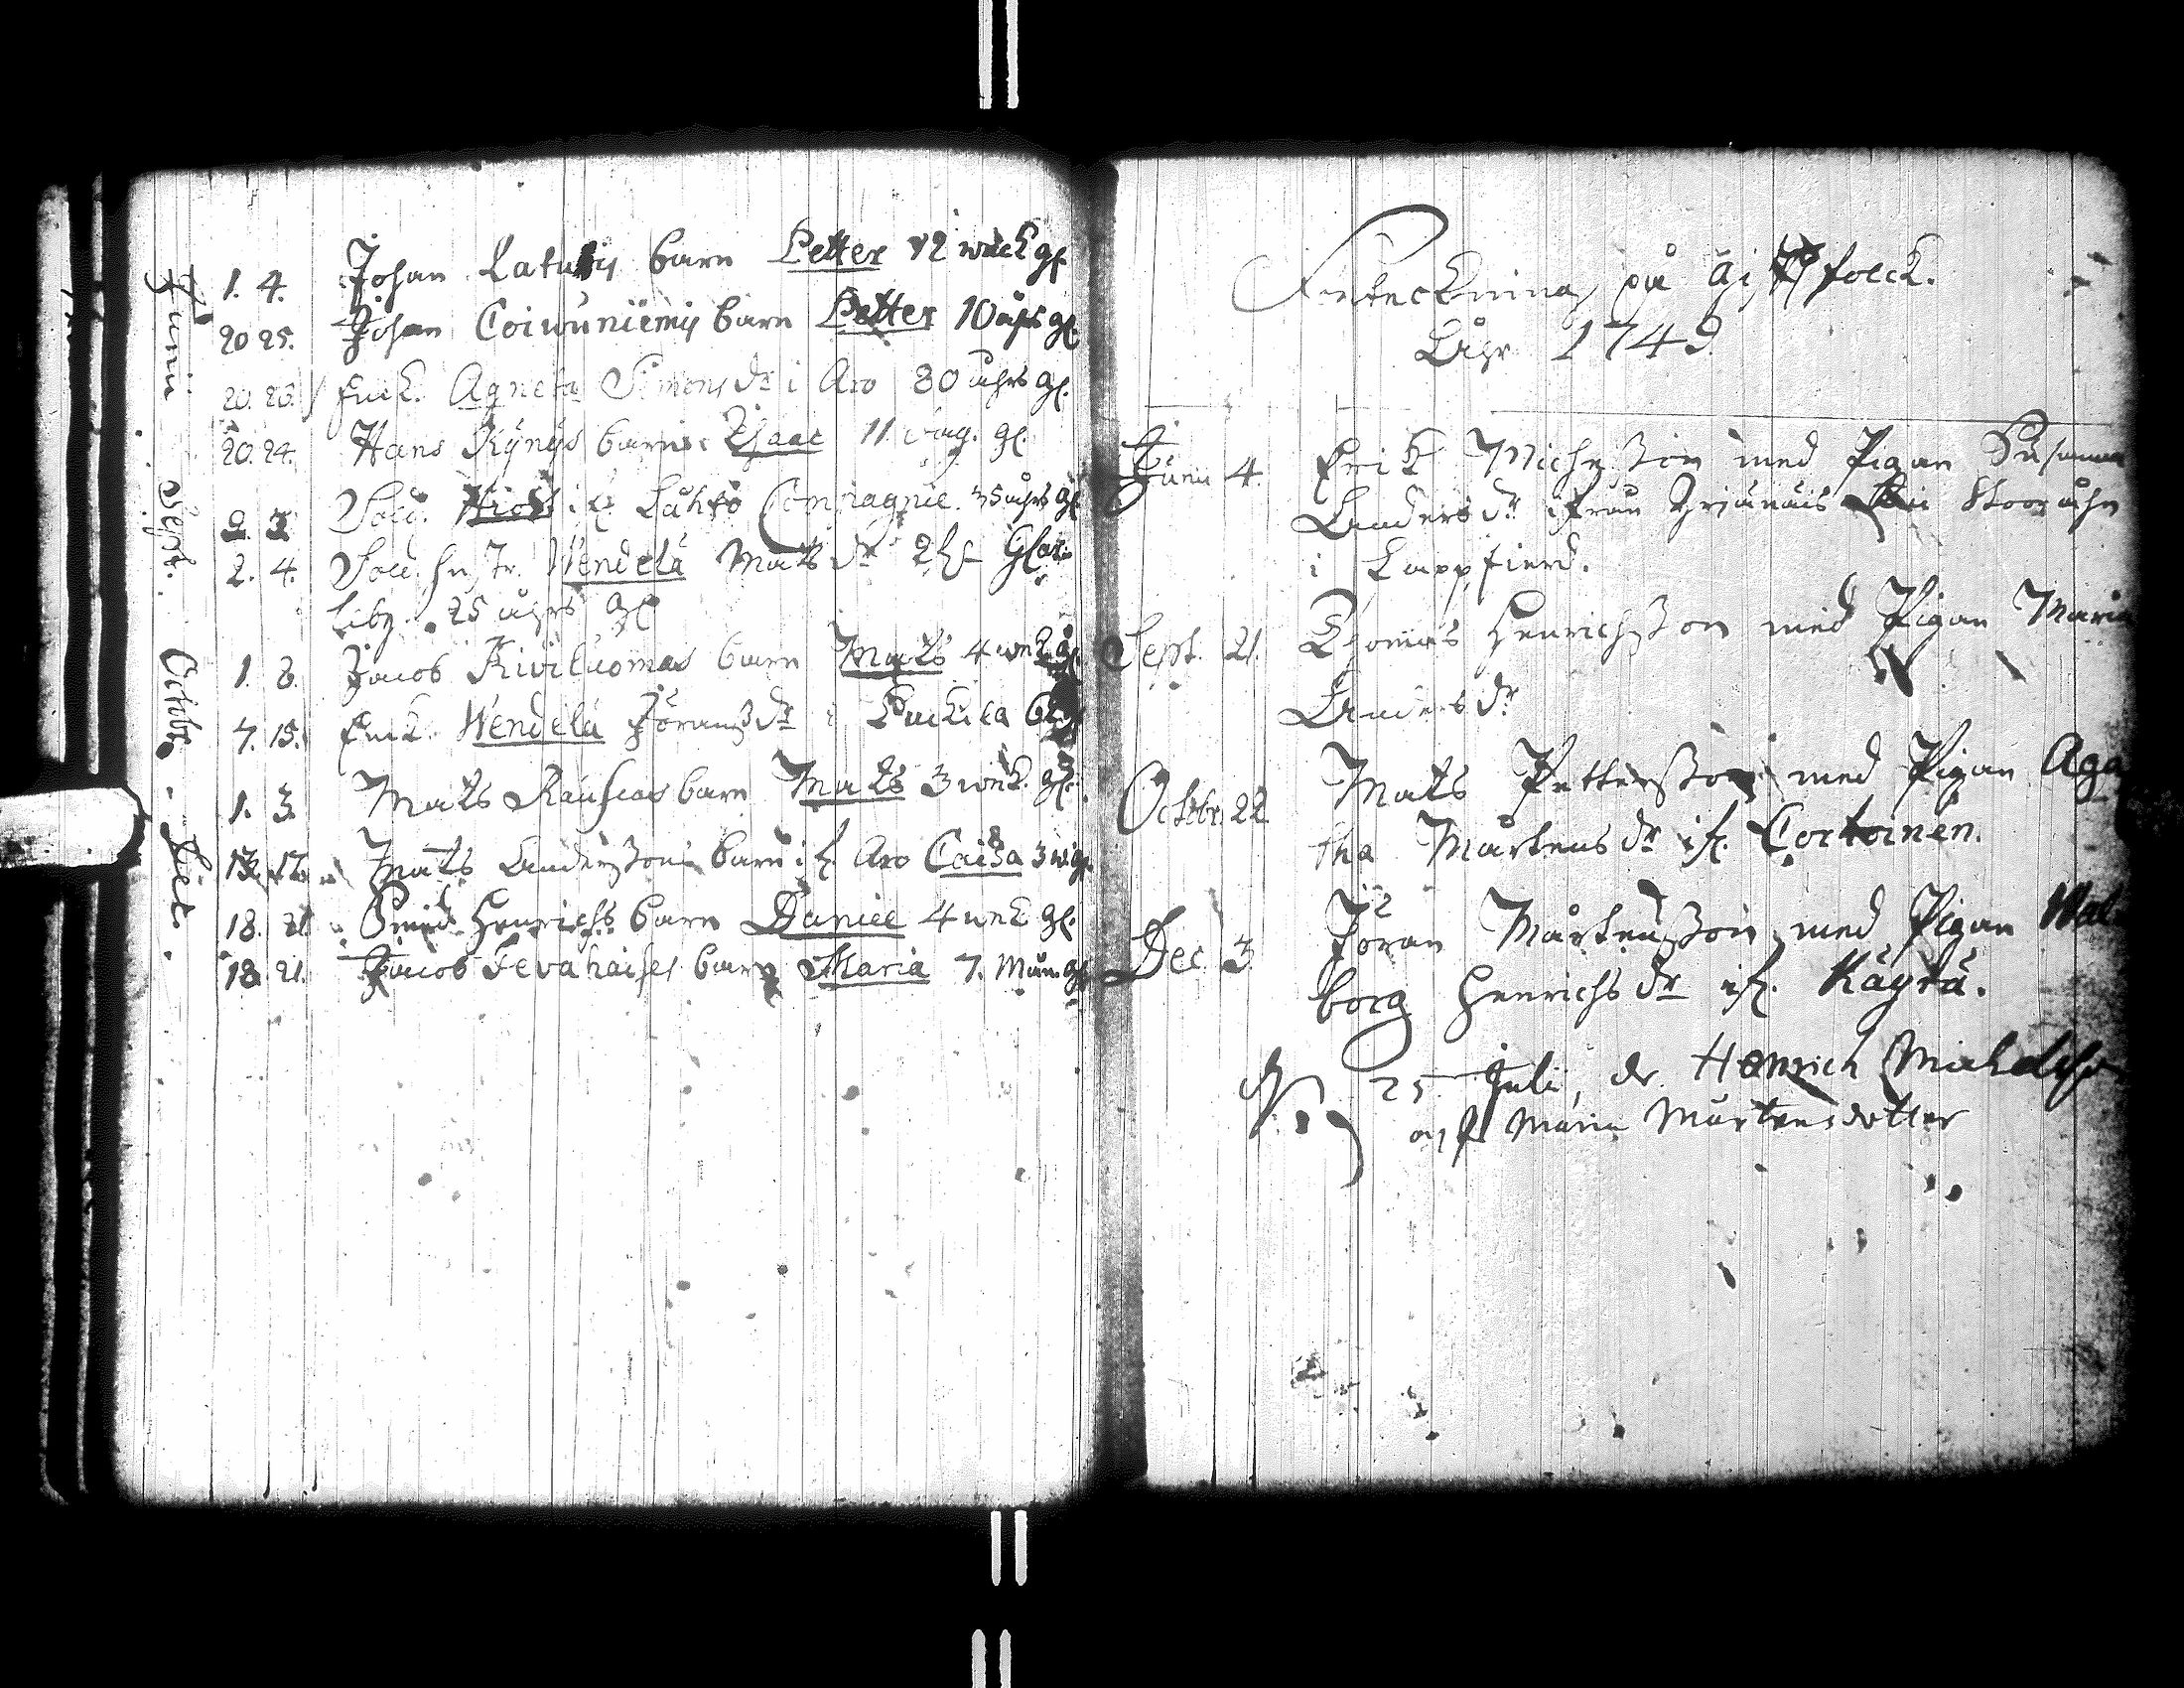 Junii
1. 4. Johan Latu barn Petter 12 weck gl.
20 25. Johan Coiwuniemis barn Petter 10 åhrs gl.
20. 26. Enck. Agneta Simons dr i Aro 80 åhrs gl.
20. 24. Hans Kynys barn Isaac 11 dag. gl.
Sept. 2. 3. Sold. Compagnie 35 åhrs gl.
2. 4. Sold. hustr. Wendela Mats dr
25 åhrs gl
Octobr. 1. 8. Jacob Kiviluomas barn Mats 4 wek gl.
7. 15. Enk. Wendela Jöransdr i
Dec. 1. 3. Mats barn Mats 3 wek. gl.
13. 17. Mats Anderssons barn if. Aro Caisa 3 w. gl.
18. 21. Smed. Henrichs barn Daniel 4 wek gl.
18. 21. Jacob Levahaises barn Maria 7. Mån. gl.
Anteckning på ägtfolck.
Åhr 1749
Junii 4. Erik Michelsson med Pigan Susanna
Anders dr ifrån Storåhn
i Lappfierd.
Sept. 21. Thomas Henrichsson med Pigan Maria
Anders dr
Octobr. 22. Mats Pettersson med Pigan Aga
tha Mårtens dr if. Cortoinen.
Dec. 3 Jöran Mårtensson med Pigan Wal
borg Henrichs dr if. Käyrä.
25 Juli, dr. Henrich Michelss
och P. Maria Mårtensdotter